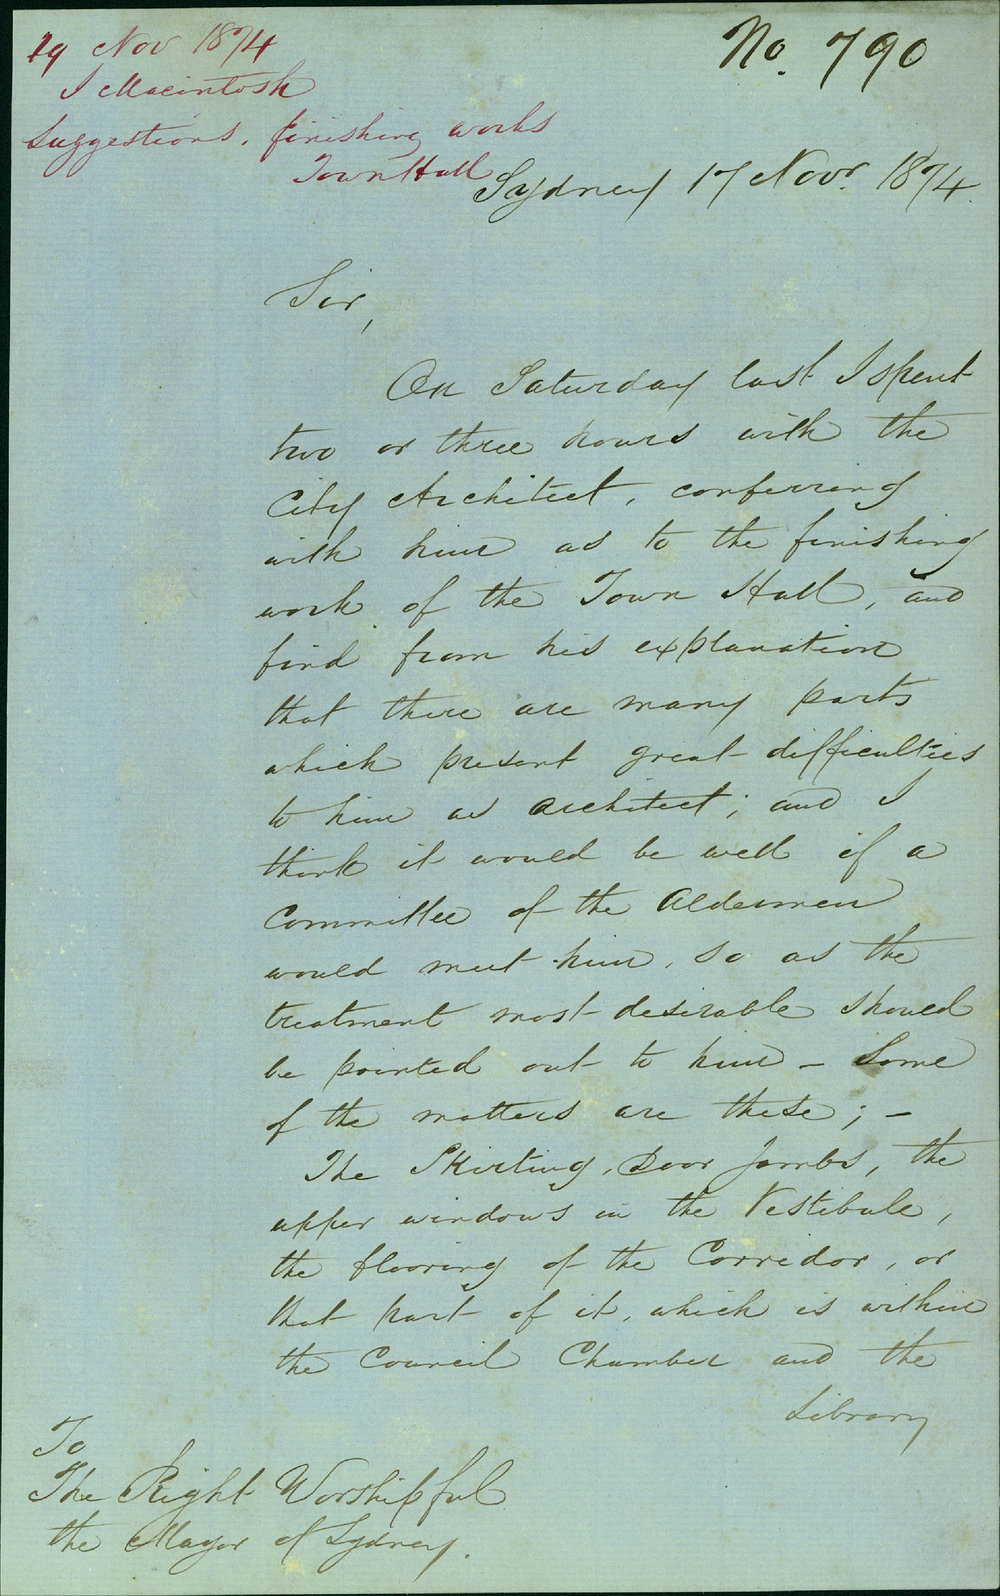 19 Nov 1874
J Macintosh
Suggestions. finishing works
Town Hall
No. 790
Sydney 17 Novr. 1874.
Sir,
On Saturday last I spent
two or three hours with the
City Architect, conferring
with him as to the finishing
work of the Town Hall, and
find from his explanation
that there are many parts
which present great difficulties
to him as architect; and I
think it would be well if a
Committee of the Aldermen
would meet him, so as the
treatment most desirable should
be pointed out to him – Some
of the matters are these; –
The Skirting, Door Jambs, the
upper windows in the Vestibule,
the flooring of the Corridor, or
that part of it, which is within
the Council Chamber and the
Library
To
The Right Worshipful
the Mayor of Sydney.